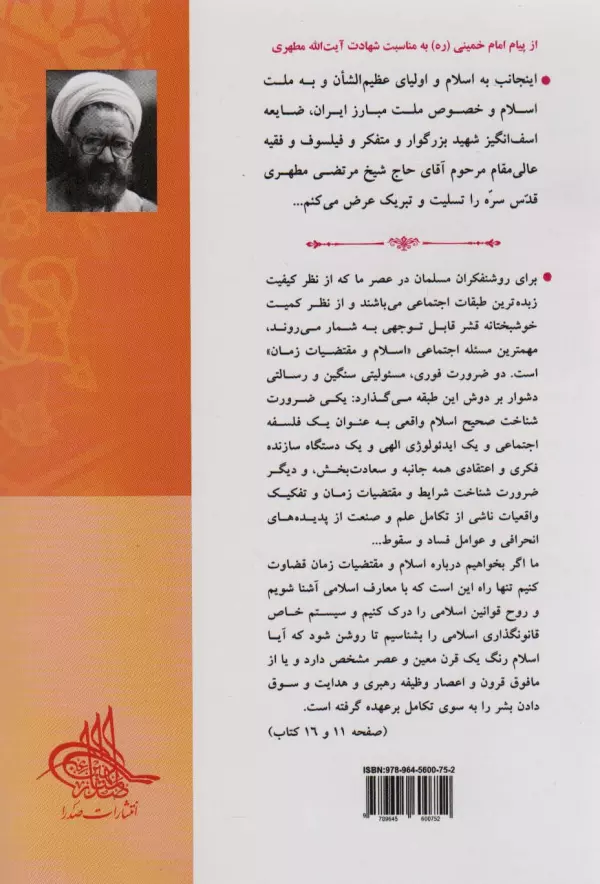 از پیام امام خمینی (ره) به مناسبت شهادت آیت‌الله مطهری
● اینجانب به اسلام و اولیای عظیم‌الشأن و به ملت
اسلام و خصوص ملت مبارز ایران، ضایعه
اسف‌انگیز شهید بزرگوار و متفکر و فیلسوف و فقیه
عالی‌مقام مرحوم آقای حاج شیخ مرتضی مطهری
قدّس سرّه را تسلیت و تبریک عرض می‌کنم...
● برای روشنفکران مسلمان در عصر ما که از نظر کیفیت
زبده‌ترین طبقات اجتماعی می‌باشند و از نظر کمیت
خوشبختانه قشر قابل توجهی به شمار می‌روند،
مهمترین مسئله اجتماعی «اسلام و مقتضیات زمان»
است. دو ضرورت فوری، مسئولیتی سنگین و رسالتی
دشوار بر دوش این طبقه می‌گذارد: یکی ضرورت
شناخت صحیح اسلام واقعی به عنوان یک فلسفه
اجتماعی و یک ایدئولوژی الهی و یک دستگاه سازنده
فکری و اعتقادی همه جانبه و سعادت‌بخش، و دیگر
ضرورت شناخت شرایط و مقتضیات زمان و تفکیک
واقعیات ناشی از تکامل علم و صنعت از پدیده‌های
انحرافی و عوامل فساد و سقوط...
ما اگر بخواهیم درباره اسلام و مقتضیات زمان قضاوت
کنیم تنها راه این است که با معارف اسلامی آشنا شویم
و روح قوانین اسلامی را درک کنیم و سیستم خاص
قانونگذاری اسلامی را بشناسیم تا روشن شود که آیا
اسلام رنگ یک قرن معین و عصر مشخص دارد و یا از
مافوق قرون و اعصار وظیفه رهبری و هدایت و سوق
دادن بشر را به سوی تکامل برعهده گرفته است.
(صفحه ۱۱ و ۱۶ کتاب)
ISBN: 978-964-5600-75-2
9 789645 600752
انتشارات صدرا